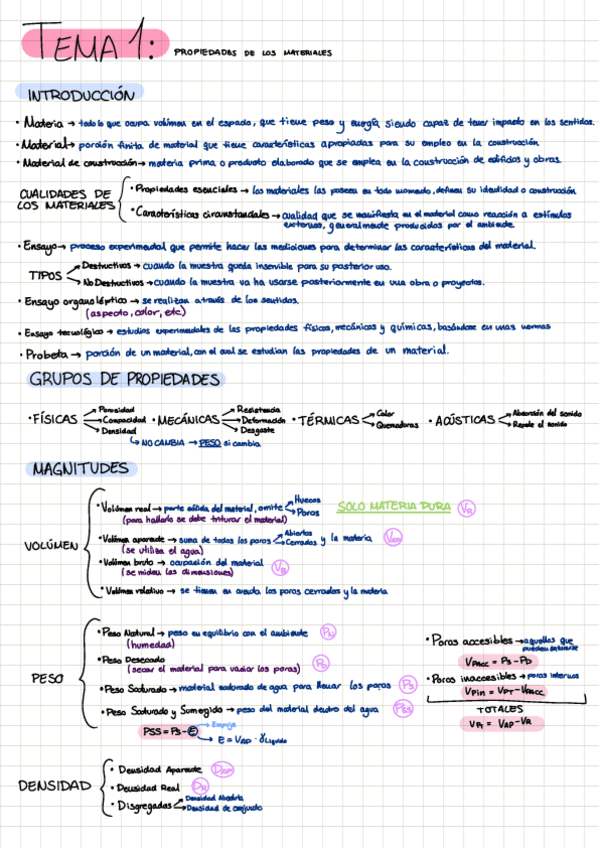 TEMA 1: PROPIEDADES DE LOS MATERIALES
INTRODUCCIÓN
• Materia → todo lo que ocupa volúmen en el espacio, que tiene peso y energía siendo capaz de tener impacto en los sentidos.
• Material → porción finita de material que tiene características apropiadas para su empleo en la construcción
• Material de construcción → materia prima o producto elaborado que se emplea en la construcción de edificios y obras.
CUALIDADES DE LOS MATERIALES
• Propiedades esenciales → los materiales las poseen en todo momento, definen su identidad o construcción
• Características circunstanciales → cualidad que se manifiesta en el material como reacción a estímulos
externos, generalmente producidos por el ambiente.
• Ensayo → proceso experimental que permite hacer las mediciones para determinar las características del material.
TIPOS
Destructivos → cuando la muestra queda inservible para su posterior uso.
No Destructivos → cuando la muestra va ha usarse posteriormente en una obra o proyectos.
• Ensayo organoléptico → se realizan através de los sentidos.
(aspecto, color, etc.)
• Ensayo tecnológico → estudios experimentales de las propiedades físicas, mecánicas y químicas, basándose en unas normas
• Probeta → porción de un material, con el cual se estudian las propiedades de un material.
GRUPOS DE PROPIEDADES
• FÍSICAS → Porosidad
→ Compacidad
→ Densidad
↳ NO CAMBIA → PESO si cambia
• MECÁNICAS → Resistencia
→ Deformación
→ Desgaste
• TÉRMICAS → Calor
→ Quemaduras
• ACÚSTICAS → Absorción del sonido
→ Repele el sonido
MAGNITUDES
VOLÚMEN
• Volúmen real → parte sólida del material, omite → Huecos
→ Poros
SOLO MATERIA PURA VR
(para hallarlo se debe triturar el material)
• Volúmen aparente → suma de todos los poros → Abiertos
→ Cerrados y la materia VAP
(se utiliza el agua)
• Volúmen bruto → ocupación del material
(se miden las dimensiones) VB
• Volúmen relativo → se tienen en cuenta los poros cerrados y la materia
PESO
• Peso Natural → peso en equilibrio con el ambiente PN
(humedad)
• Peso Desecado
(secar el material para vaciar los poros) PD
• Peso Saturado → material saturado de agua para llenar los poros PS
• Peso Saturado y Sumergido → peso del material dentro del agua PSS
PSS = PS - E → Empuje
→ E = VAP · γLíquido
• Poros accesibles → aquellos que
pueden saturarse
VPACC = PS - PD
• Poros inaccesibles → poros internos
VPin = VPT - VPACC
TOTALES
VPT = VAP - VR
DENSIDAD
• Densidad Aparente DAP
• Densidad Real DR
• Disgregadas → Densidad Absoluta
→ Densidad de conjunto